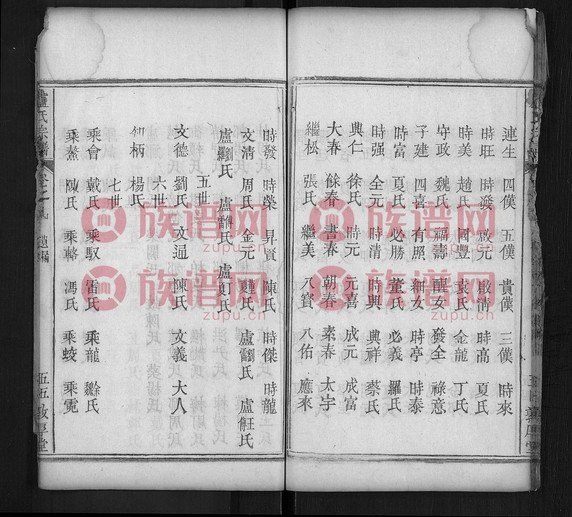 連生 四僕 五僕 貴僕 三僕 時來
時旺 時發 啟元 啟清 時高 夏氏
時美 趙氏 國豐 袁氏 金龍 丁氏
守政 魏氏 福壽 醒女 發全 祿意
子建 四喜 有照 細女 時亭 時泰
時富 夏氏 必勝 董氏 必義 羅氏
時强 全元 時清 時興 典祥 蔡氏
典仁 徐氏 時元 元喜 成元 成富
大春 餘春 書春 朝春 素春 太宇
繼松 張氏 繼美 八寶 八佑 應來
時發 時榮 昇賢 陳氏 時傑 時龍
文清 周氏 金元 鄭氏 盧
盧 盧 盧
五世
文德 劉氏 文通 陳氏 文義 大人
六世
柄 楊氏
七世
乘會 戴氏 乘馭 雷氏 乘龍 氏
乘 陳氏 乘輅 馮氏 乘蛟 乘霓
盧氏宗譜
遺漏
五五 敦厚堂
族谱网
zupu.cn